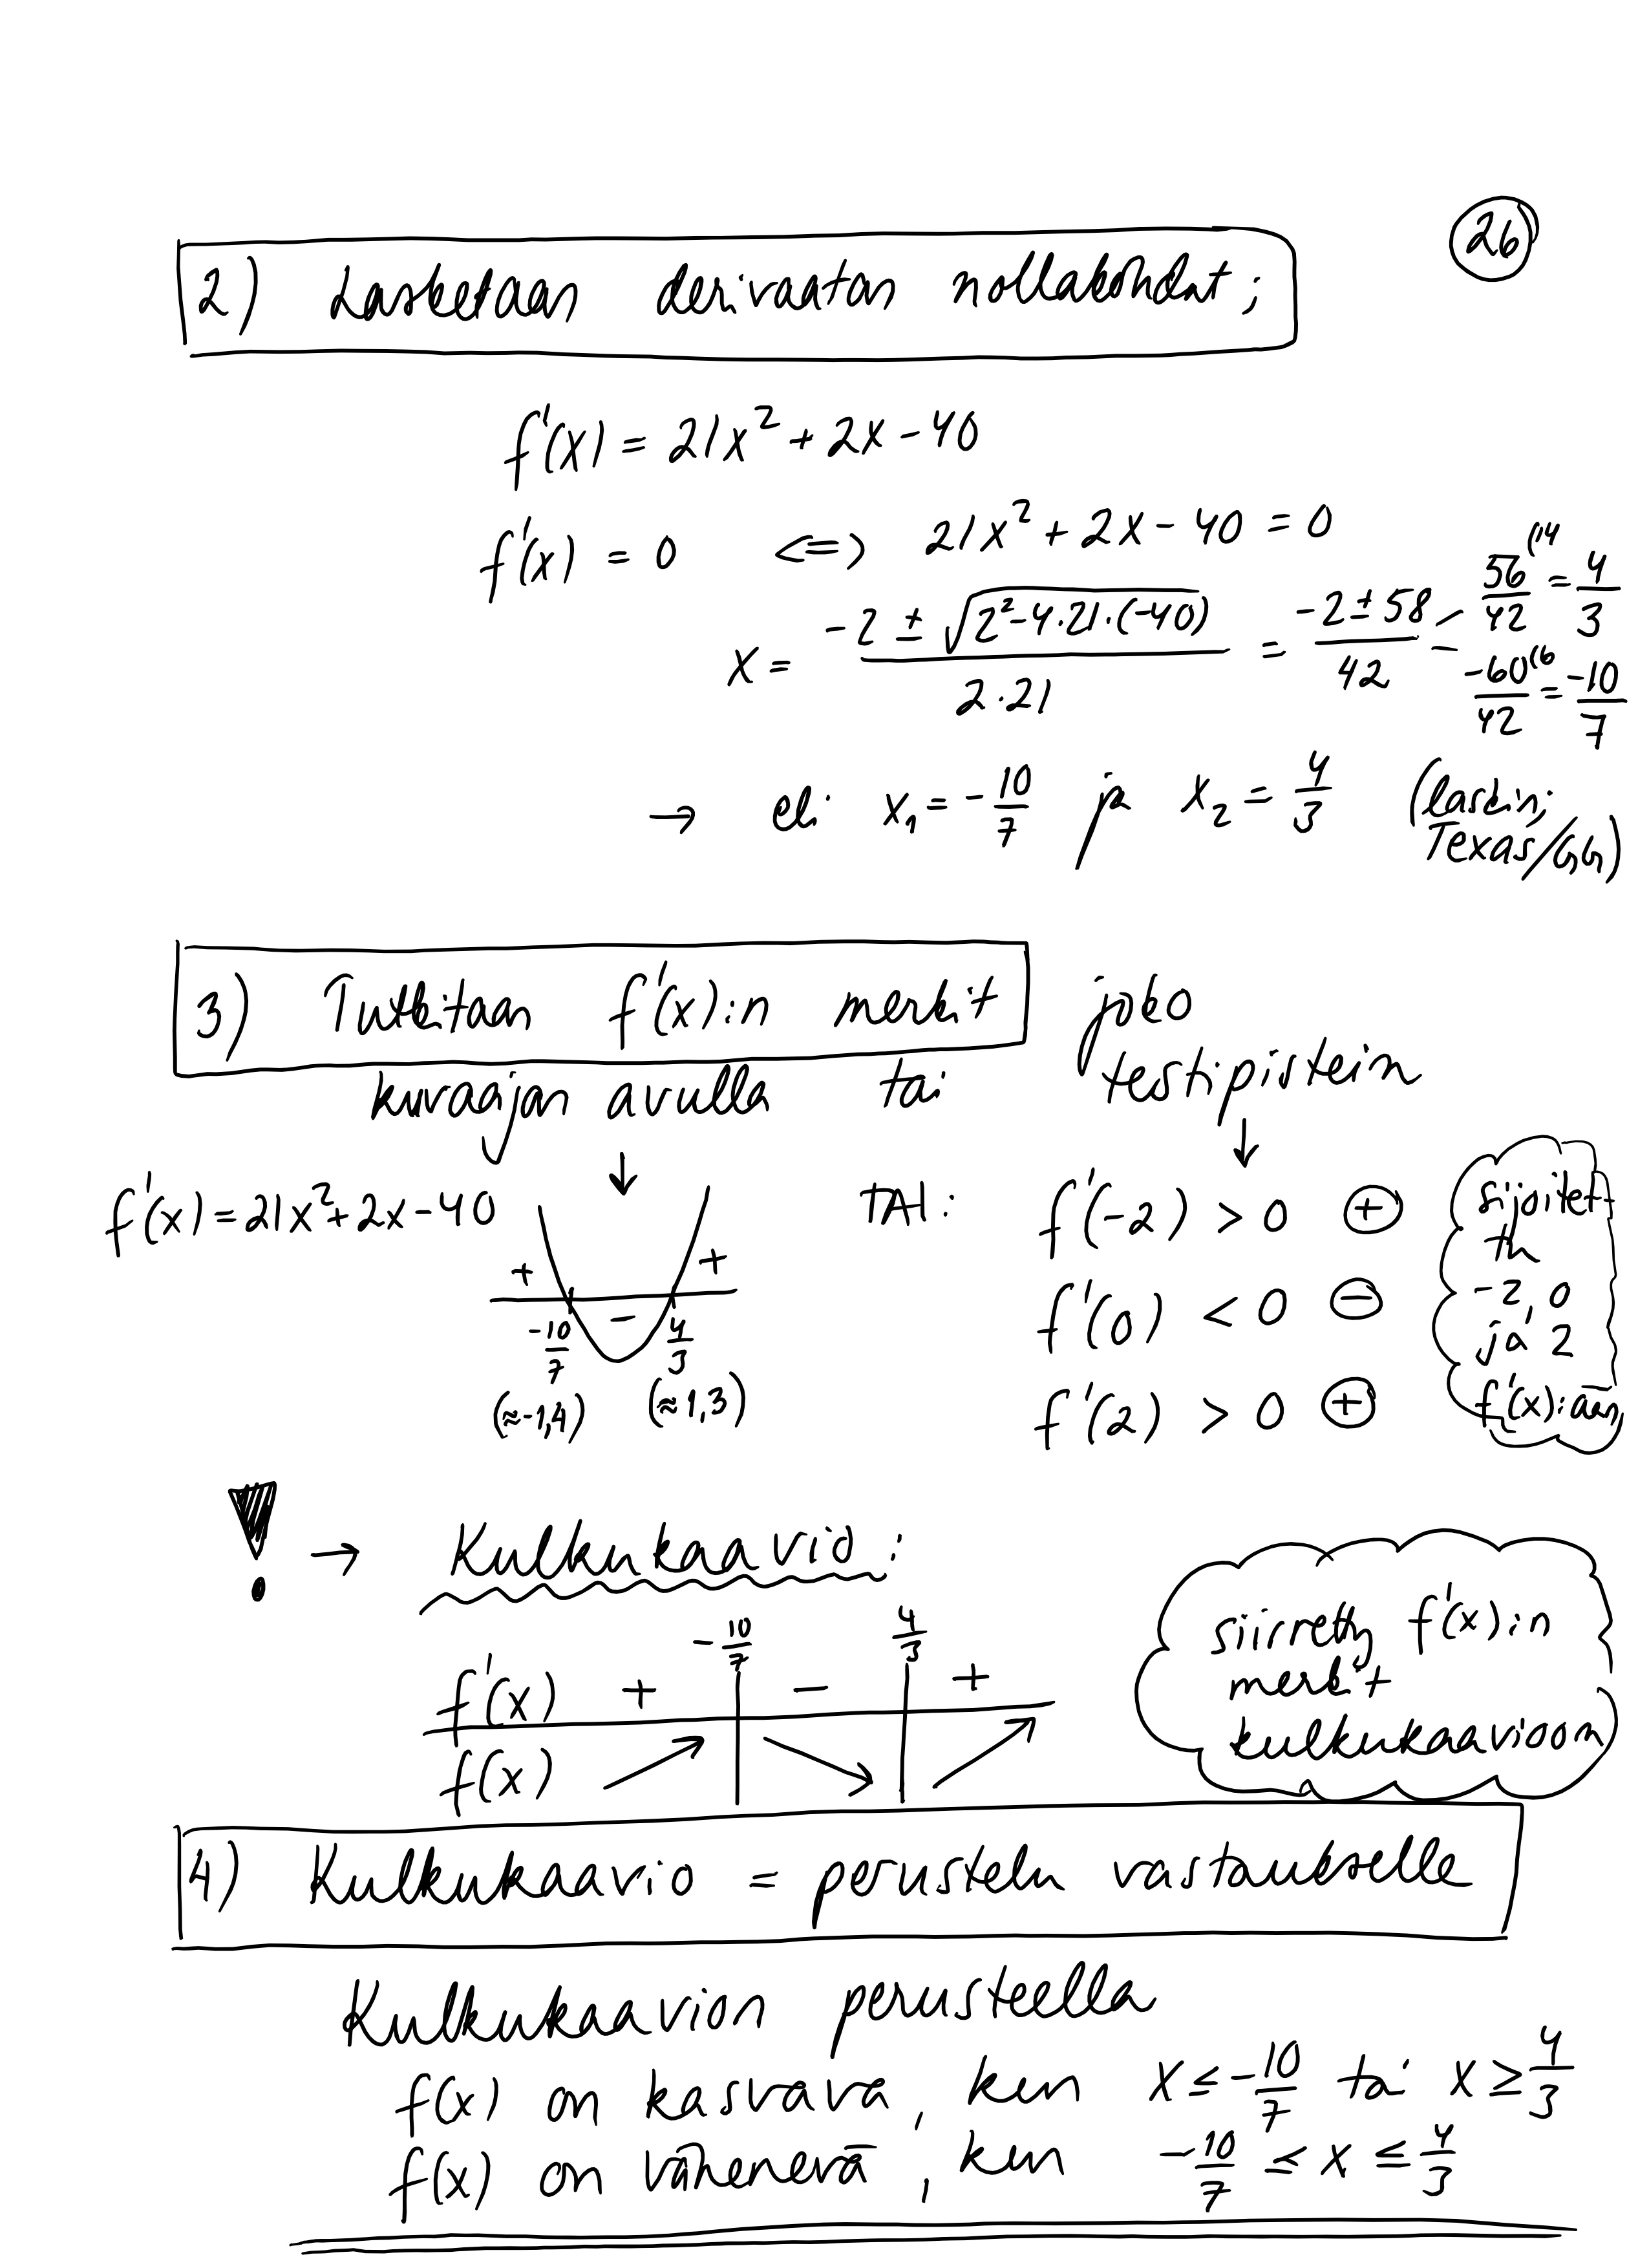 26
2) Lasketaan derivaatan nollakohdat:
f'(x) = 21x² + 2x - 40
f'(x) = 0 <=> 21x² + 2x - 40 = 0
x = (-2 ± √(2² - 4·21·(-40))) / (2·21) = (-2 ± 58) / 42
56/42 (14 = 4/3
-60/42 (6 = -10/7
→ eli x₁ = -10/7 ja x₂ = 4/3 (laskin;
Texas/GG)
3) Tutkitaan f'(x):n merkit joko
kuvaajan avulla tai testipistein
↓ ↓
f'(x) = 21x² + 2x - 40
+ - +
-10/7 4/3
(≈-1,4) (≈1,3)
TAI:
f'(-2) > 0 ⊕
f'(0) < 0 ⊖
f'(2) > 0 ⊕
sijoitet-
tu
-2, 0
ja 2
f'(x):ään
! → Kulkukaavio:
-10/7 4/3
f'(x) + - +
f(x) ↗ ↘ ↗
siirretty f'(x):n
merkit
kulkukaavioon
4) Kulkukaavio = perustelu vastaukselle
Kulkukaavion perusteella
f(x) on kasvava, kun x ≤ -10/7 tai x ≥ 4/3
f(x) on vähenevä, kun -10/7 ≤ x ≤ 4/3